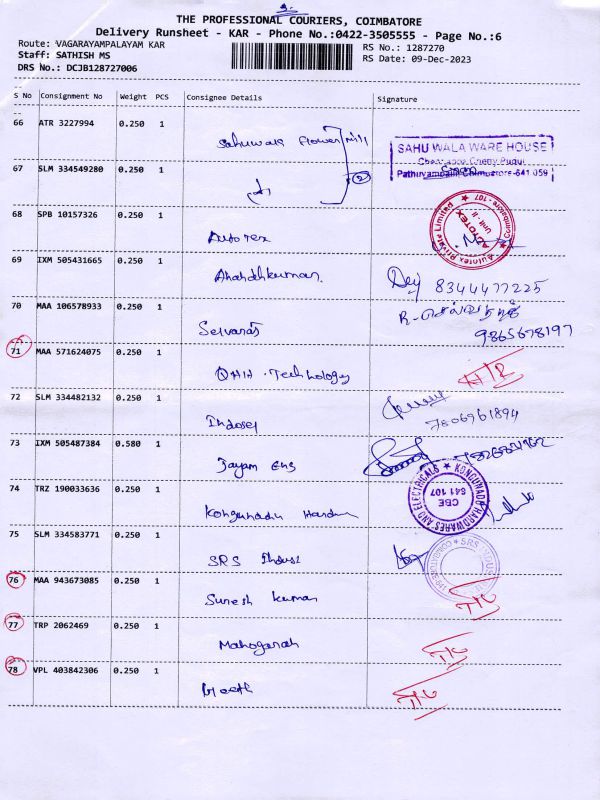 THE PROFESSIONAL COURIERS, COIMBATORE
Delivery Runsheet - KAR - Phone No.:0422-3505555 - Page No.:6
Route: VAGARAYAMPALAYAM KAR
RS No.: 1287270
Staff: SATHISH MS
RS Date: 09-Dec-2023
DRS No.: DCJB128727006
S No Consignment No Weight PCS Consignee Details Signature
66 ATR 3227994 0.250 1
SAHU WALA WARE HOUSE
67 SLM 334549280 0.250 1
2
68 SPB 10157326 0.250 1
Autotex
Autotex Private Limited Coimbatore - 107
AUTOTEX
Unit - II
69 IXM 505431665 0.250 1
Anandhkumar
8344477225
70 MAA 106578933 0.250 1
Selvaraj
R. செல்வராஜ்
9865678197
71 MAA 571624075 0.250 1
Technology
72 SLM 334482132 0.250 1
7806961894
73 IXM 505487384 0.580 1
Jayam Eng
74 TRZ 190033636 0.250 1
KONGUNADU HARDWARES AND ELECTRICALS
CBE
641 107
Kongunadu
75 SLM 334583771 0.250 1
SRS Indust
76 MAA 943673085 0.250 1
Suresh Kumar
77 TRP 2062469 0.250 1
78 VPL 403842306 0.250 1